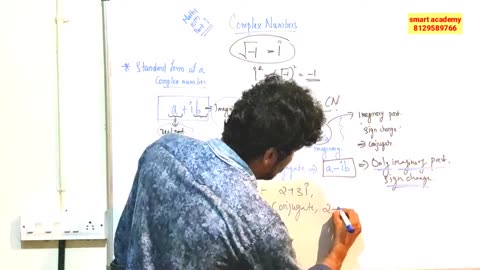 smart academy
8129589766
Maths
Part 1
Complex Numbers
√-1 = i
i² = (√-1)² = -1
* Standard form of a
Complex number
a + ib
Real part
CN
imaginary
Imaginary part
Sign change
→ Conjugate
a - ib → Only imaginary part
Sign change
2+3i,
Conjugate, 2-